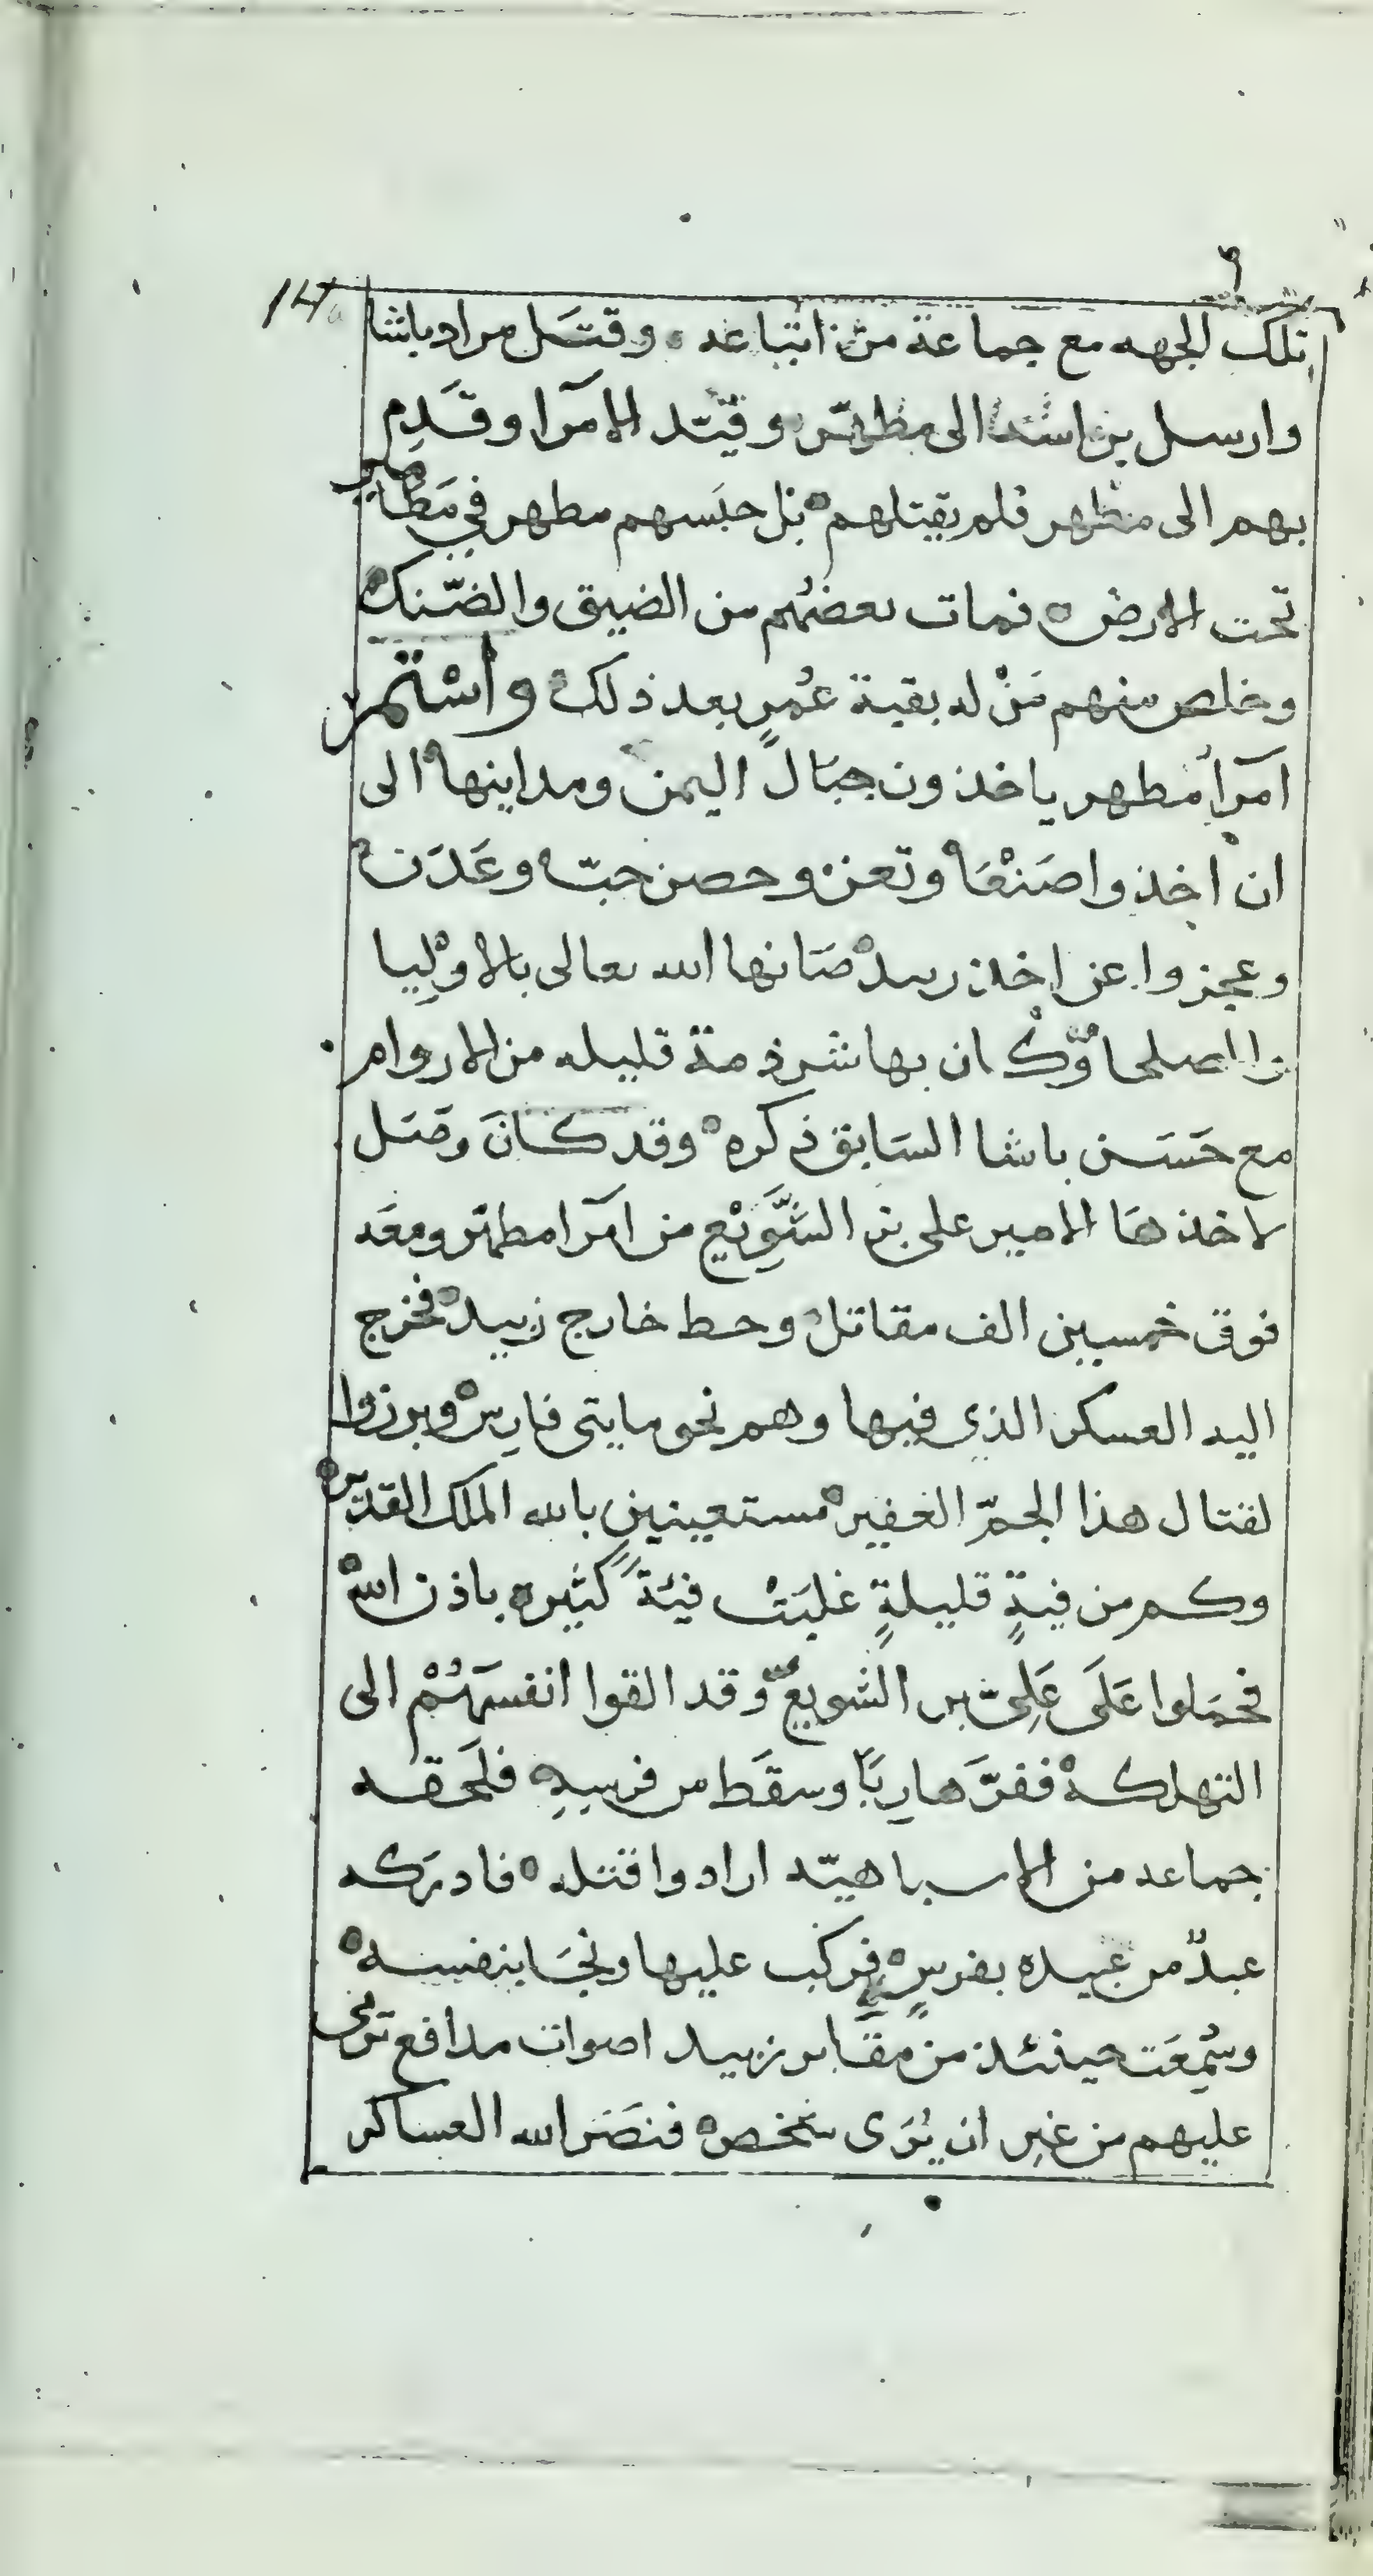 14a
تلك الجهه مع جماعة من اتباعه وقتل مراد باشا
وارسل براسه الى مطهر وقيّد الامرا وقدم
بهم الى مطهر فلم يقتلهم بل حبسهم مطهر في مطامير
تحت الارض فمات بعضهم من الضيق والضّنك
وخلص منهم مَنْ له بقية عُمرٍ بعد ذلك واستمر
امرا مطهر ياخذون جبال اليمن ومداينها الى
ان اخذوا صَنْعَا وتعز وحصن حبّ وعَدَن
وعجزوا عن اخذ زبيد صَانها الله تعالى بالاوْلِيا
والصلحا وكان بها شرذمة قليله من الاروام
مع حَسَن باشا السَابق ذكره وقد كانَ وصَل
لاخذهَا الامير على بن الشَّوِيْع من امَرا مطهّر ومعه
فوق خمسين الف مقاتل وحط خارج زبيد فخرج
اليه العسكر الذي فيها وهم نحو مايتى فارس وبرزوا
لقتال هذا الجمّ الغفير مستعينين بالله الملك القدير
وكم من فيةٍ قليلةٍ غلبَتْ فيئَةً كثيره باذن الله
فحمَلوا عَلَى عَلِىّ بن الشويع وقد القوا انفسهُمْ الى
التهلكة ففرَّ هاربًا وسقَط من فرسِهِ فلَحقه
جماعه من الاسباهيّه ارادوا قتله فادركه
عبدٌ من عبيده بفرسٍ فركب عليها ونجَا بنفسه
وسُمِعَت حينئذ من مقَابر زبيد اصوات مدافع ترمى
عليهم من غير ان يُرَى شخص فنصَر الله العساكر